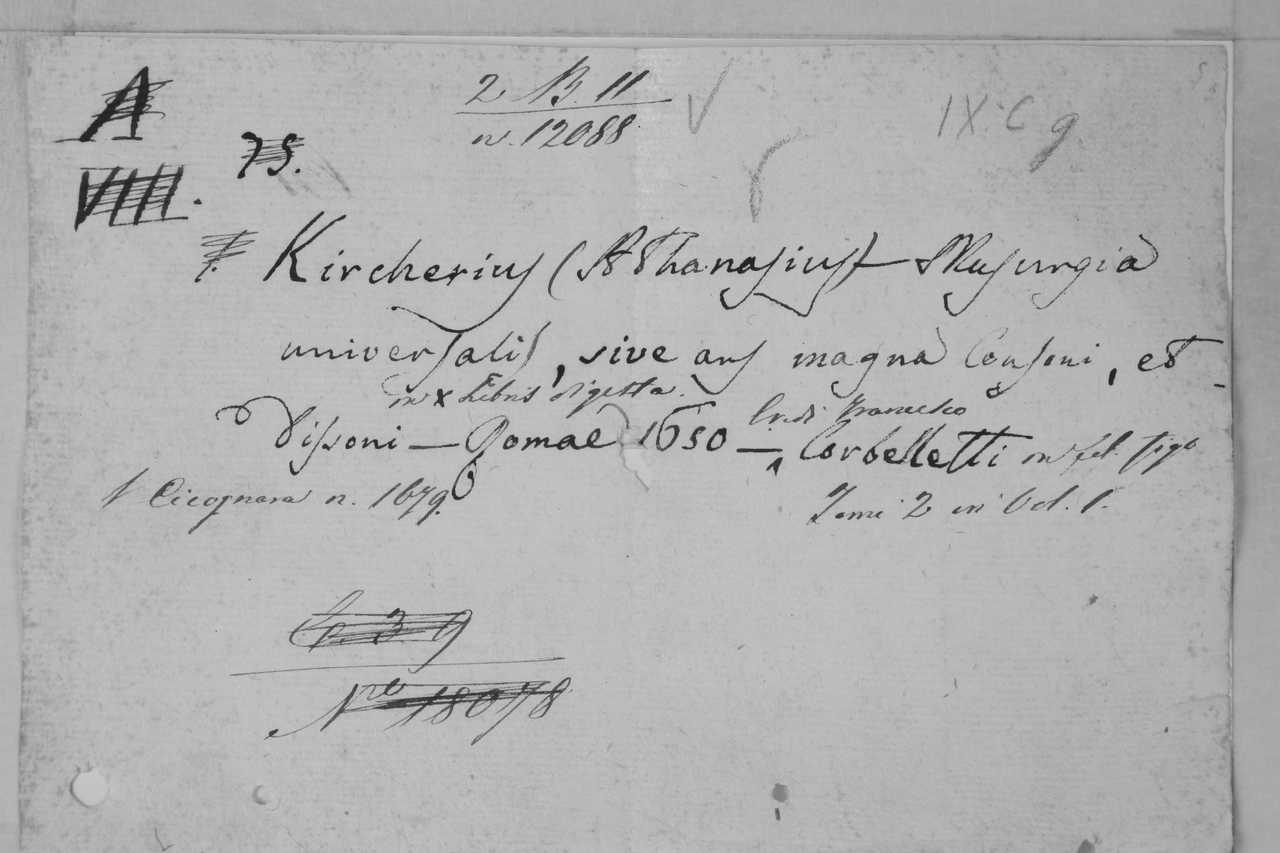 A
VIII.
75.
2 B. 11
n. 12088
IX. C 9
Kircherius (Athanasius) — Musurgia
universalis, sive ars magna Consoni, et
in x Libris digesta.
Dissoni — Romae 1650 — Corbelletti in fol. figo
Eredi Francesco
Cicognara n. 1679.
Tomi 2 in Vol. 1.
3 9
Nro 18078